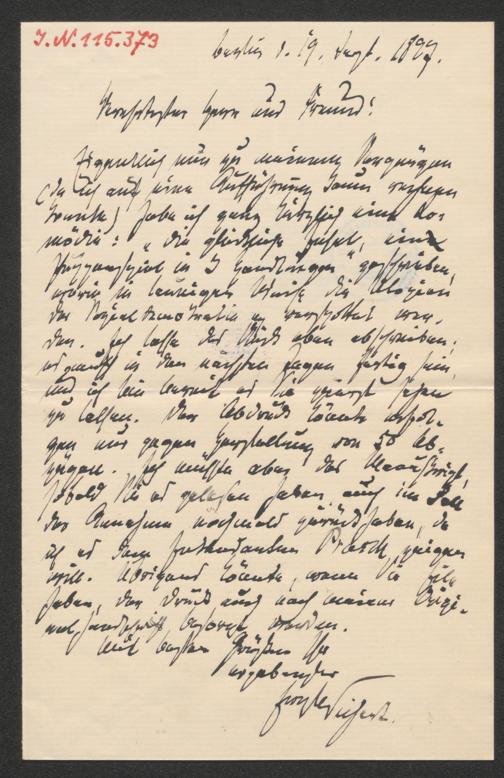 I.N. 115.373
Berlin d. 19. Sept. 1897.
Verehrtester Herr und Freund!
Eigentlich nur zu meinem Vergnügen
(da ich auf eine Aufführung kaum rechnen
konnte) habe ich ganz kürzlich eine Ko-
mödie: „die glückliche Insel, ein
in 3 Handlungen" geschrieben,
worin in launiger Weise die
der Sozialdemokratie verspottet wer-
den. Ich lasse das Stück eben abschreiben.
es in den nächsten Tagen fertig sein,
und ich bin bereit es Sie zuerst sehen
zu lassen. Der Abdruck könnte erfol-
gen nur gegen Herstellung von 50 Ab-
zügen. Ich müßte aber das Manuskript,
sobald Sie es gelesen haben, auch im Fall
der Annahme nochmals zurückhaben, da
ich es dem Intendanten Prasch zeigen
will. Übrigens könnte, wenn Sie Eile
haben, der Druck auch nach meiner Origi-
nalhandschrift besorgt werden.
Mit besten Grüßen Ihr
ergebender